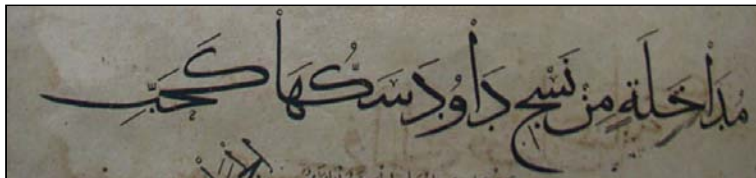 مُدَاخَلَةٍ مِنْ نَسْجِ دَاوُدَ سَكُّهَا كَحَبِّ